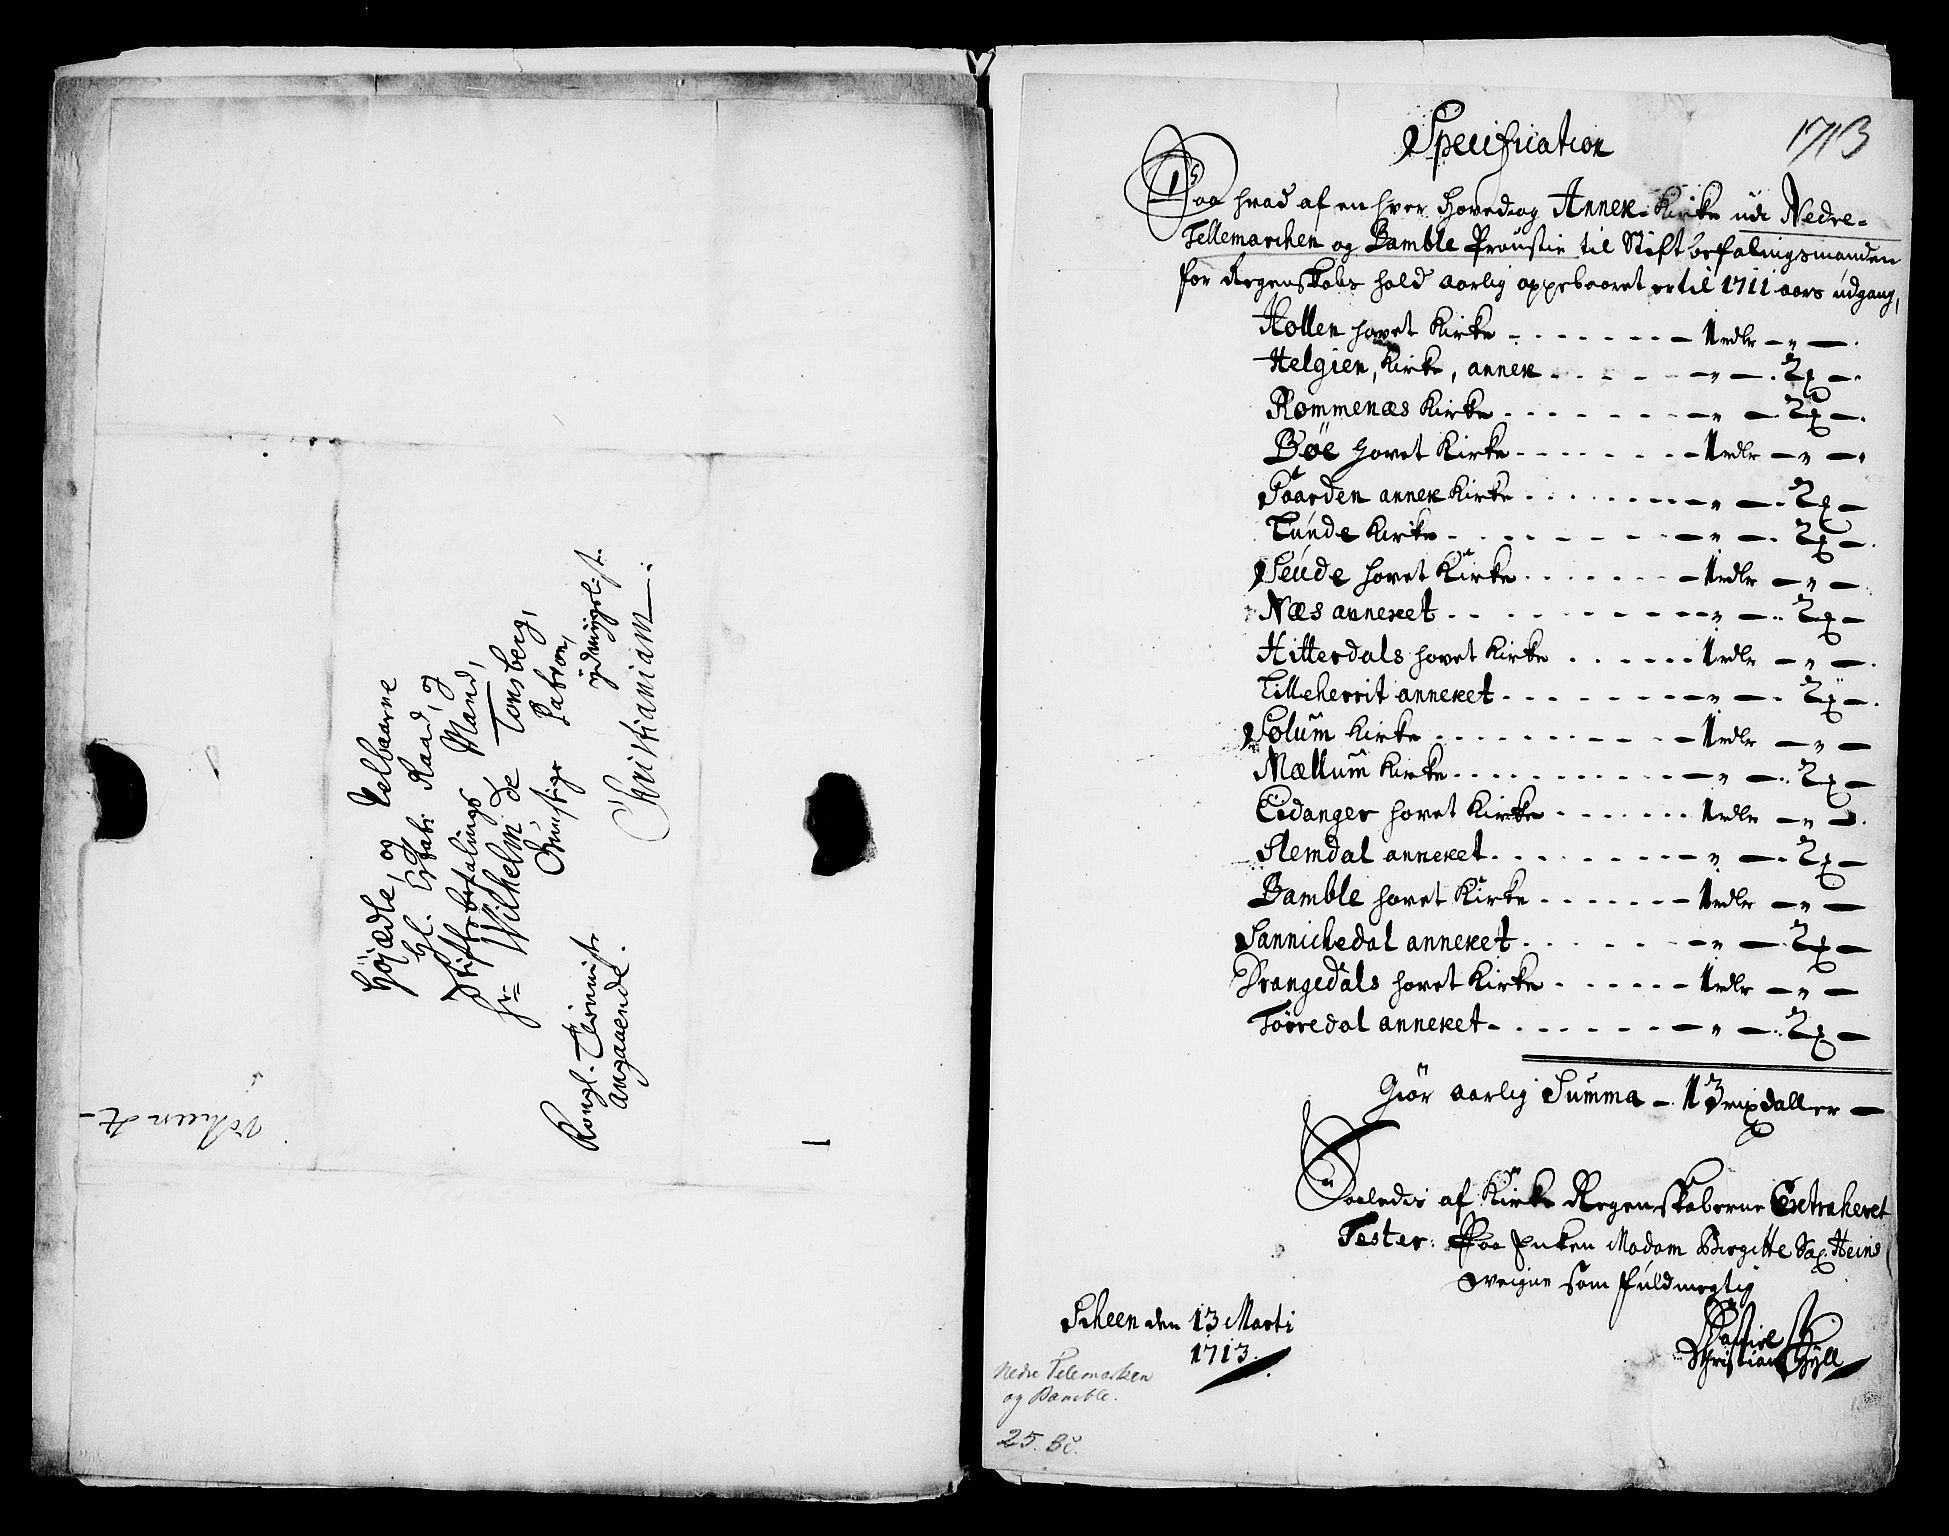 Höjædle, og Velbaarne
hl. Etats Raad, og
Stiftsbefalings Mand,
hr= Wilhelm de Tonsberg,
Gunstige Patron,
ydmygeligst.
Christianiam.
Kongl. Tienniste
angaaende.
1713
Specification
Paa hvad af en hver Hoved og Annex-Kirke udi Nedre-
Tellemarchen og Bamble Proustie til Stiftbefalingsmanden
for Regenskabs hold aarlig oppebaaret er til 1711 aars udgang,
Hollen hovet Kirke - - - 1 rdlr - " -
Helgien, Kirke, annex - - - " - 2 -
Rommenæs Kirke - - - " - 2 -
Bøe hovet Kirke - - - 1 rdlr - " -
Saarden annex Kirke - - - " - 2 -
Lunde Kirke - - - " - 2 -
Seude hovet Kirke - - - 1 rdlr - " -
Næs annexet - - - " - 2 -
Hitterdals hovet Kirke - - - 1 rdlr - " -
Lilleherrit annexet - - - " - 2 -
Solum Kirke - - - 1 rdlr - " -
Mællum Kirke - - - " - 2 -
Eidanger hovet Kirke - - - 1 rdlr - " -
Slemdal annexet - - - " - 2 -
Bamble hovet Kirke - - - 1 rdlr - " -
Sannichedal annexet - - - " - 2 -
Drangedals hovet Kirke - - - 1 rdlr - " -
Torredal annexet - - - " - 2 -
Giör aarlig Summa - 13 rixdaller -
Saaledis af Kirke Regenskaberne Extraheret
Tester. Paa Enken Madam Birgitte Sal. Heins
Weigne som fuldmegtig
Scheen den 13 Marti
1713.
Christian
Nedre Telemarken
og Bamble.
25.